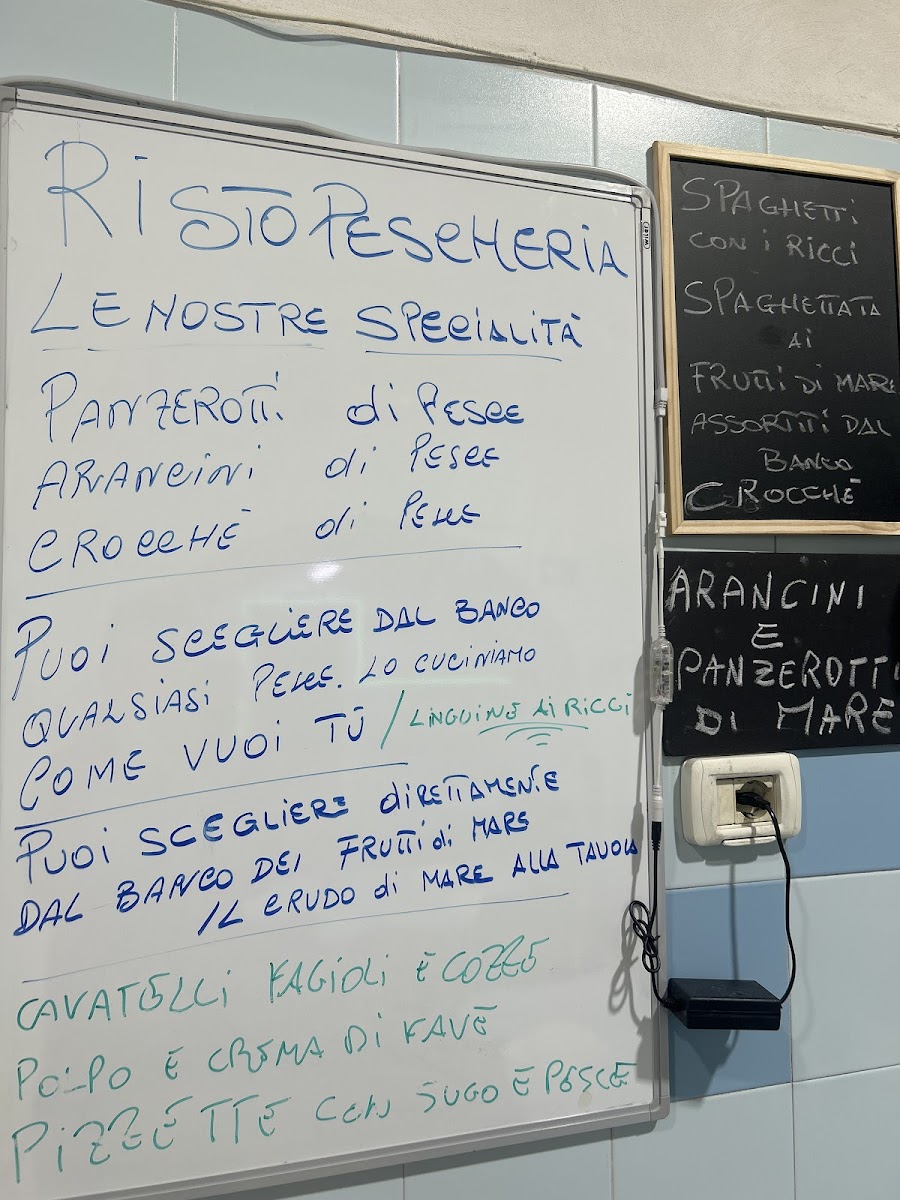 RISTOPESCHERIA
LE NOSTRE SPECIALITÀ
PANZEROTTI di PESCE
ARANCINI di PESCE
CROCCHÈ di PESCE
PUOI SCEGLIERE DAL BANCO
QUALSIASI PESCE. LO CUCINIAMO
COME VUOI TÙ / LINGUINE AI RICCI
PUOI SCEGLIERE DIRETTAMENTE
DAL BANCO DEI FRUTTI di MARE
IL CRUDO di MARE ALLA TAVOLA
CAVATELLI FAGIOLI E COZZE
POLPO E CREMA DI FAVE
PIZZETTE CON SUGO E PESCE
SPAGHETTI
CON I RICCI
SPAGHETTATA
AI
FRUTTI DI MARE
ASSORTITI DAL
BANCO
CROCCHÈ
ARANCINI
E
PANZEROTTI
DI MARE